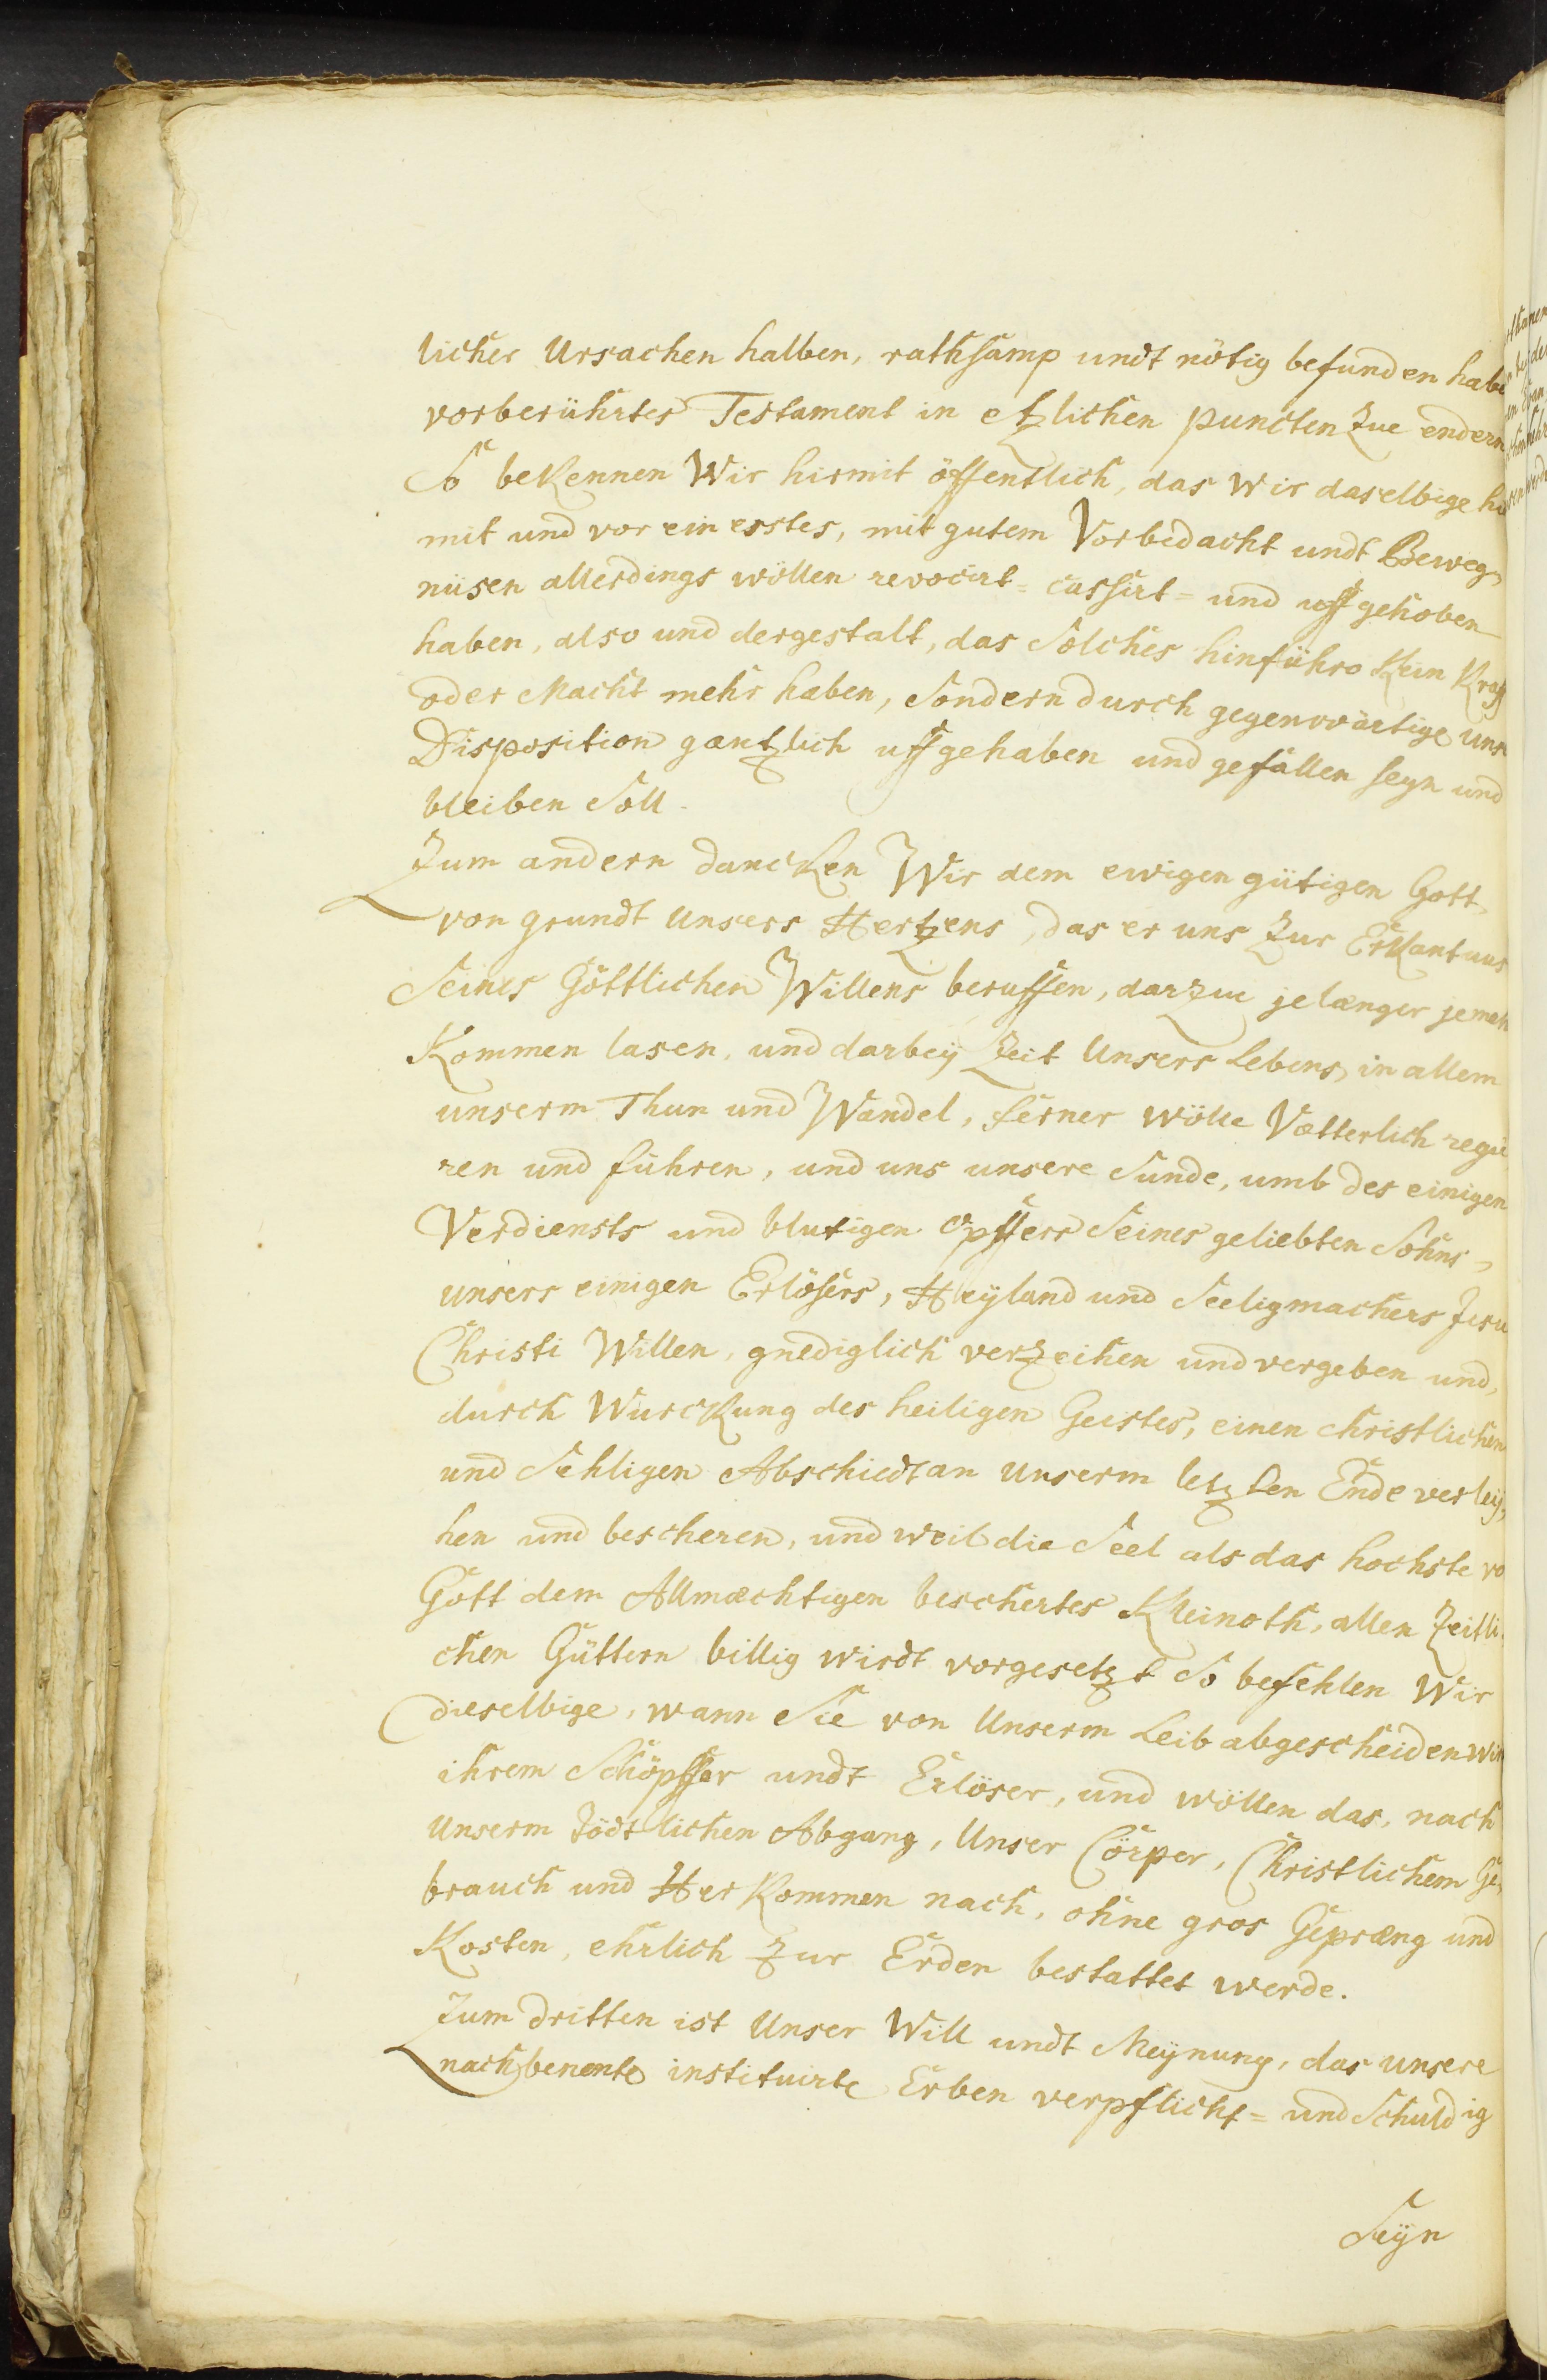 licher Ursachen halben, rathsamp undt nötig befunden habe
vorberührtes Testament in etzlichen puncten zue endern
So bekennen Wir hirmit öffentlich, das Wir daselbige hir
mit und vor ein erstes, mit gutem Vorbedacht undt Beweg,
nüsen allerdings wöllen revocirt= cassirt= und uffgehoben
haben, also und dergestalt, das Solches hinführo Kein Krafft
oder Macht mehr haben, Sondern durch gegenwärtige uns
Disposition gantzlich uffgehaben und gefallen seyn und
bleiben Soll.
Zum andern dancken Wir dem ewigen gütigen Gott,
von grundt Unsers Hertzens, das er uns zur Erkantnus
Seines Göttlichen Willens beruffen, darzue jelænger jemeh
Kommen lasen, und darbey Zeit Unsers Lebens, in allem
unserm Thun und Wandel, ferner wölle Vætterlich regie
ren und führen, und uns unsere Sunde, umb des einigen
Verdiensts und blutigen Opffers Seines geliebten Sohns,
unsers einigen Erlösers, Heyland und Seeligmachers Jesu
Christi Willen, gnediglich verzeihen und vergeben und,
durch Wurckung des heiligen Geistes, einen christlichen
und Sehligen Abschiedt an Unserm letzten Ende verley,
hen und bescheren, und weil die Seel als das hochste vo
Gott dem Allmæchtigen beschertes Kleinoth, allen Zeitli,
chen Güttern billig wirdt vorgesetzt So befehlen Wir
dieselbige, wann Sie von Unserm Leib abgescheiden wir
ihrem Schöpffer undt Erlöser, und wöllen das, nach
Unserm tödtlichen Abgang, Unser Cörper, Christlichem Ge,
brauch und Herkommen nach, ohne gros Gepræng und
Kosten, ehrlich zur Erden bestattet werde.
Zum dritten ist Unser Will undt Meynung, das unsere
nachbenente instituirte Erben verpflicht= und Schuldig
Seyn